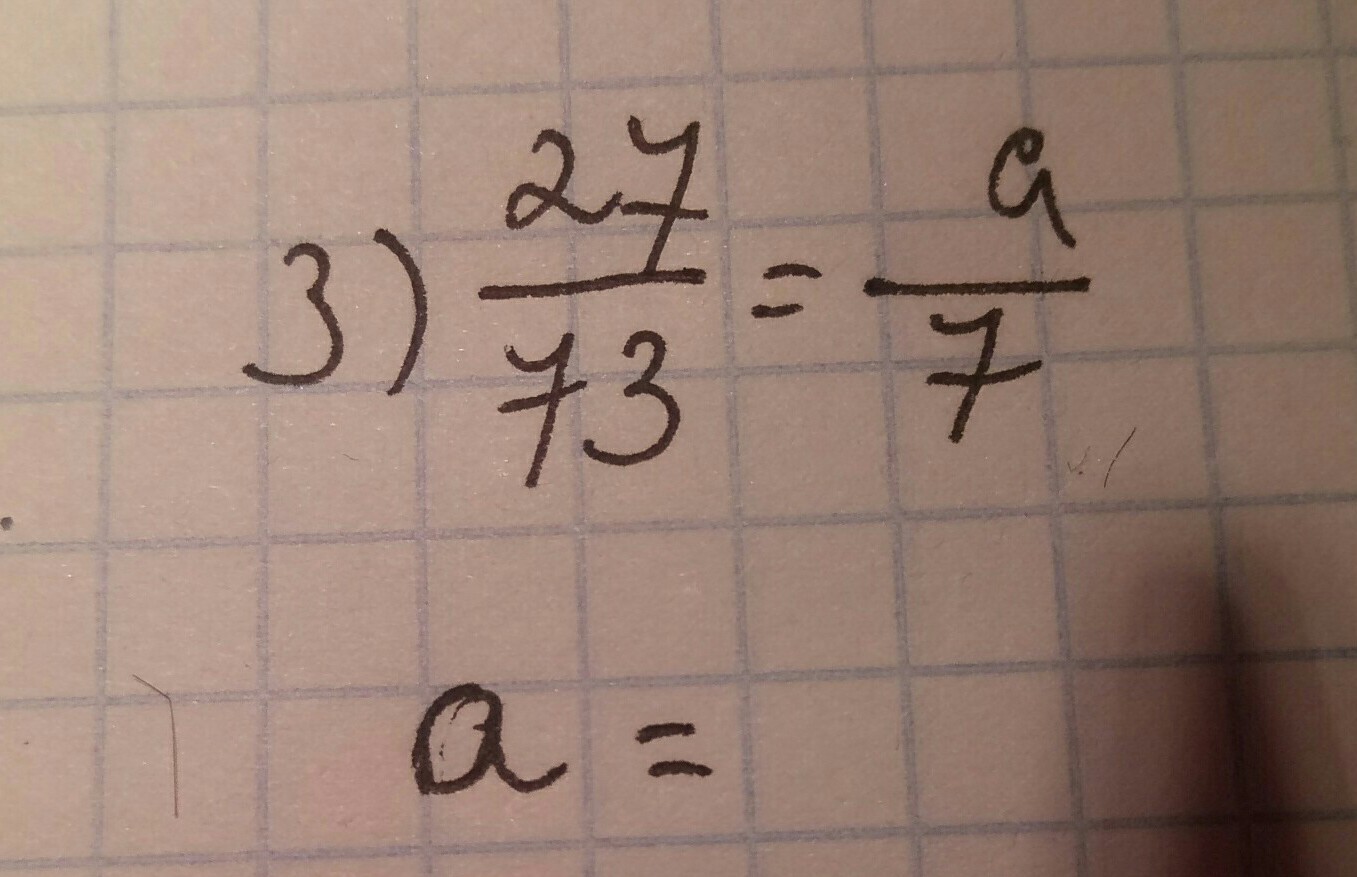 3) 27/73 = a/7
a =